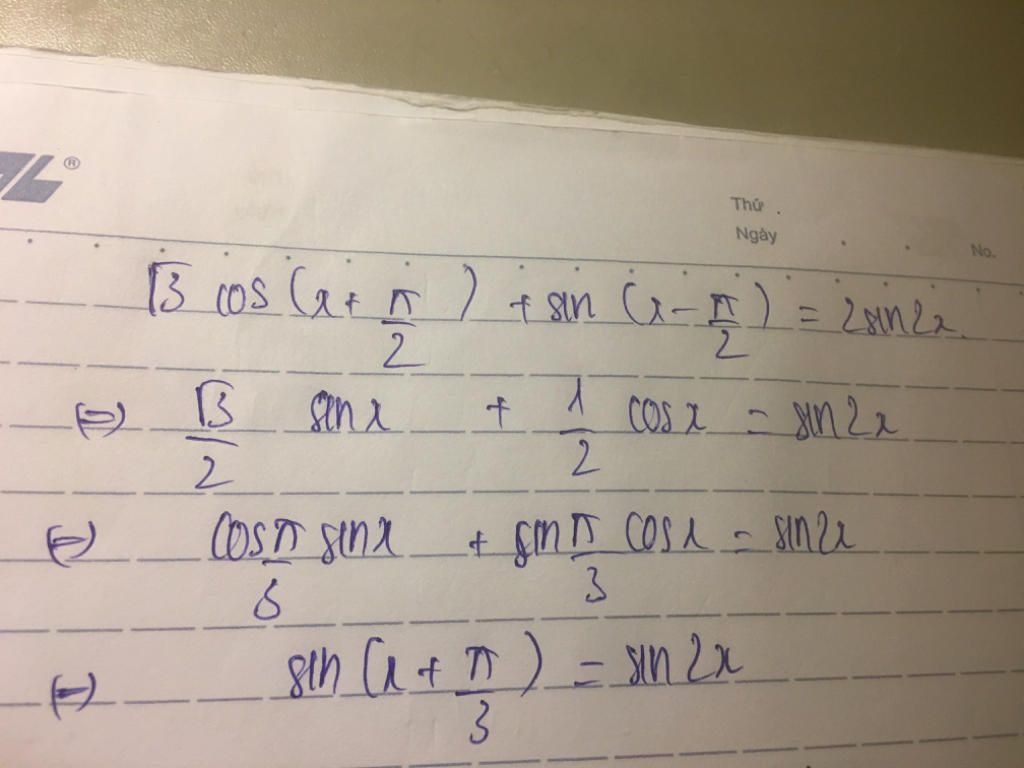 ®
Thứ .
Ngày
No.
√3 cos (x + π/2) + sin (x - π/2) = 2sin2x.
(=) √3/2 sinx + 1/2 cosx = sin2x
(=) cos π/6 sinx + sin π/3 cosx = sin2x
(=) sin (x + π/3) = sin2x